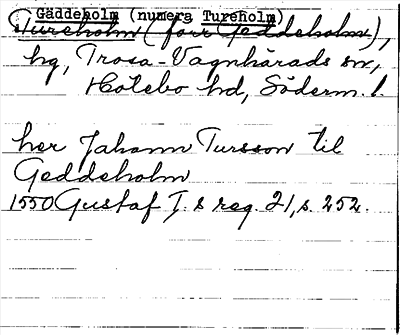 Gäddeholm (numera Tureholm)
Tureholm (förr Geddeholm),
hg, Trosa-Vagnhärads sn,
Hölebo hd, Söderm. l.
her Johann Tursson til
Geddeholm
1550 Gustaf I. s reg. 21, s. 252.